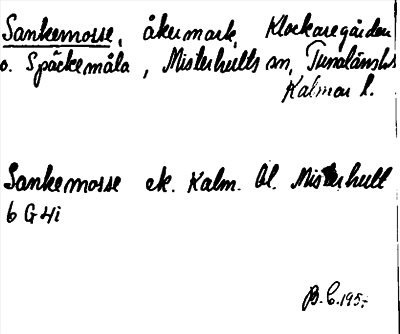 Sankemosse, åkermark, Klockaregården
o. Späckemåla, Misterhults sn, Tunaläns hd
Kalmar l.
Sankemosse ek. Kalm. Bl. Misterhult
6 G 4i
B.C. 195: